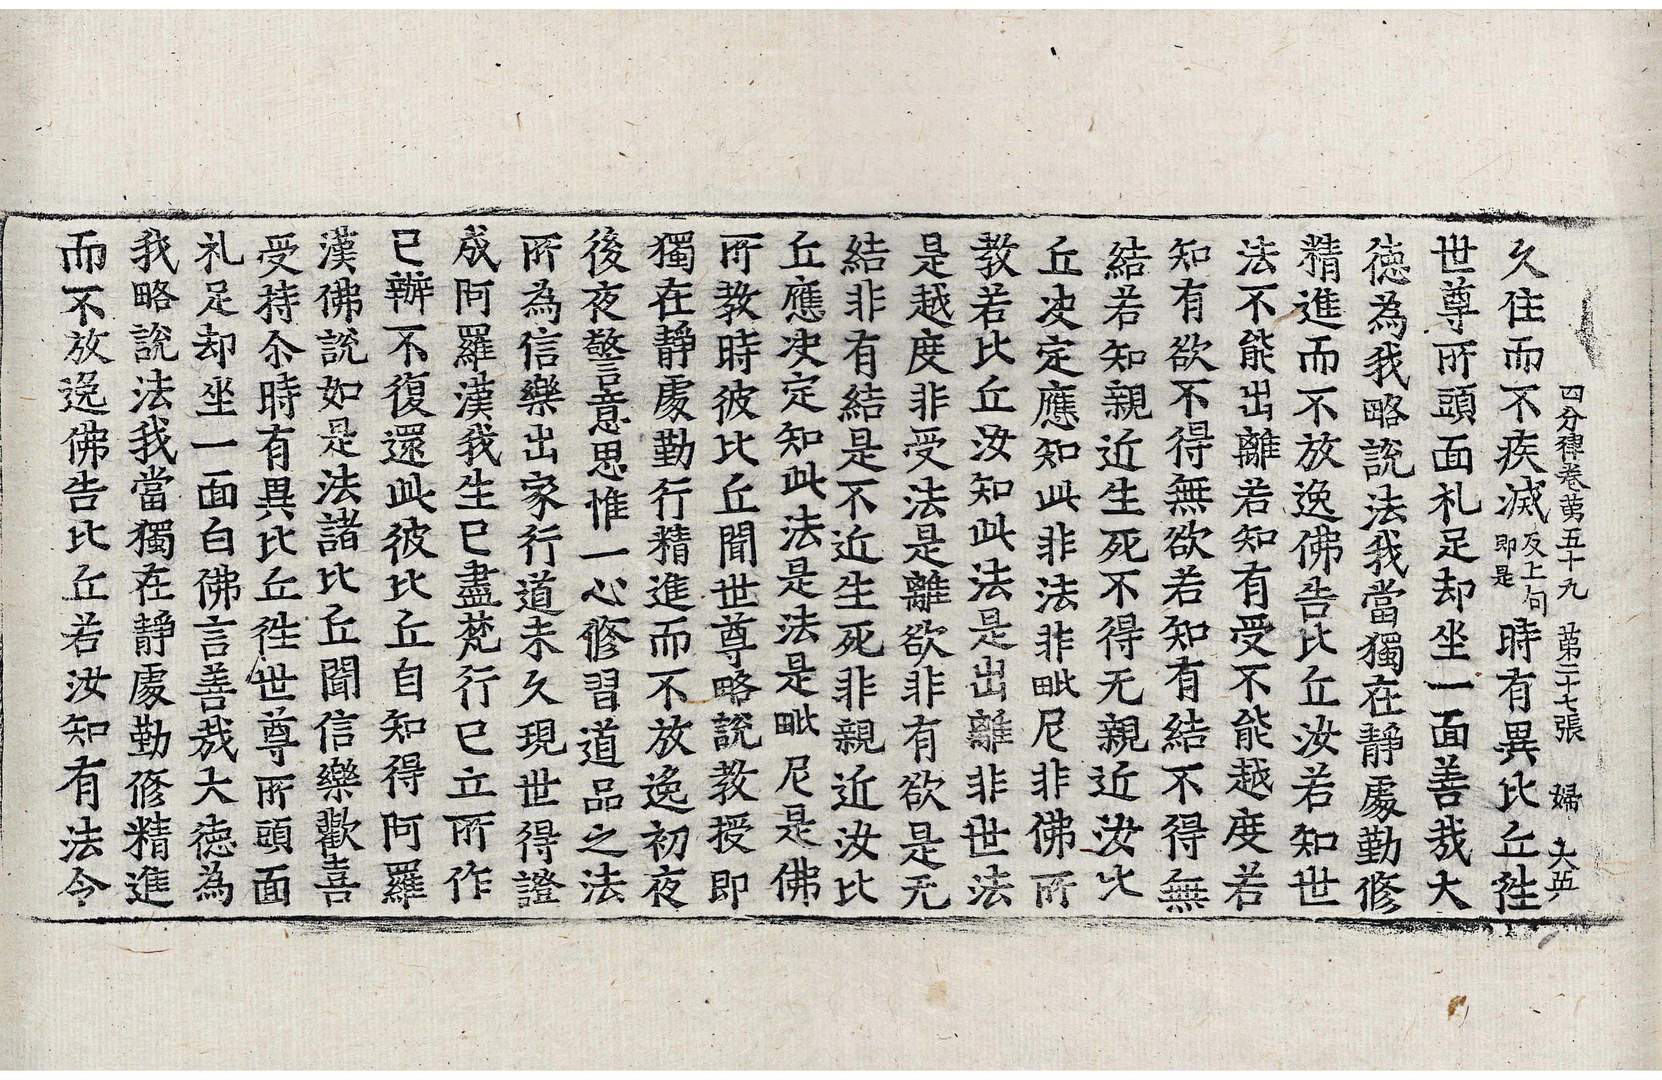 四分律卷苐五十九 苐二十七張 婦 大莊
久住而不疾滅反上句即是時有異比丘徃
世尊所頭面礼足却坐一面善哉大
徳為我略説法我當獨在靜處勤修
精進而不放逸佛告比丘汝若知世
法不能出離若知有受不能越度若
知有欲不得無欲若知有結不得無
結若知親近生死不得无親近汝比
丘决定應知此非法非毗尼非佛所
教若比丘汝知此法是出離非世法
是越度非受法是離欲非有欲是无
結非有結是不近生死非親近汝比
丘應决定知此法是法是毗尼是佛
所教時彼比丘聞世尊略説教授即
獨在靜處勤行精進而不放逸初夜
後夜警意思惟一心修習道品之法
所為信樂出家行道未久現世得證
成阿羅漢我生已盡梵行已立所作
已辦不復還此彼比丘自知得阿羅
漢佛説如是法諸比丘聞信樂歡喜
受持尒時有異比丘徃世尊所頭面
礼足却坐一面白佛言善哉大徳為
我略説法我當獨在靜處勤修精進
而不放逸佛告比丘若汝知有法令